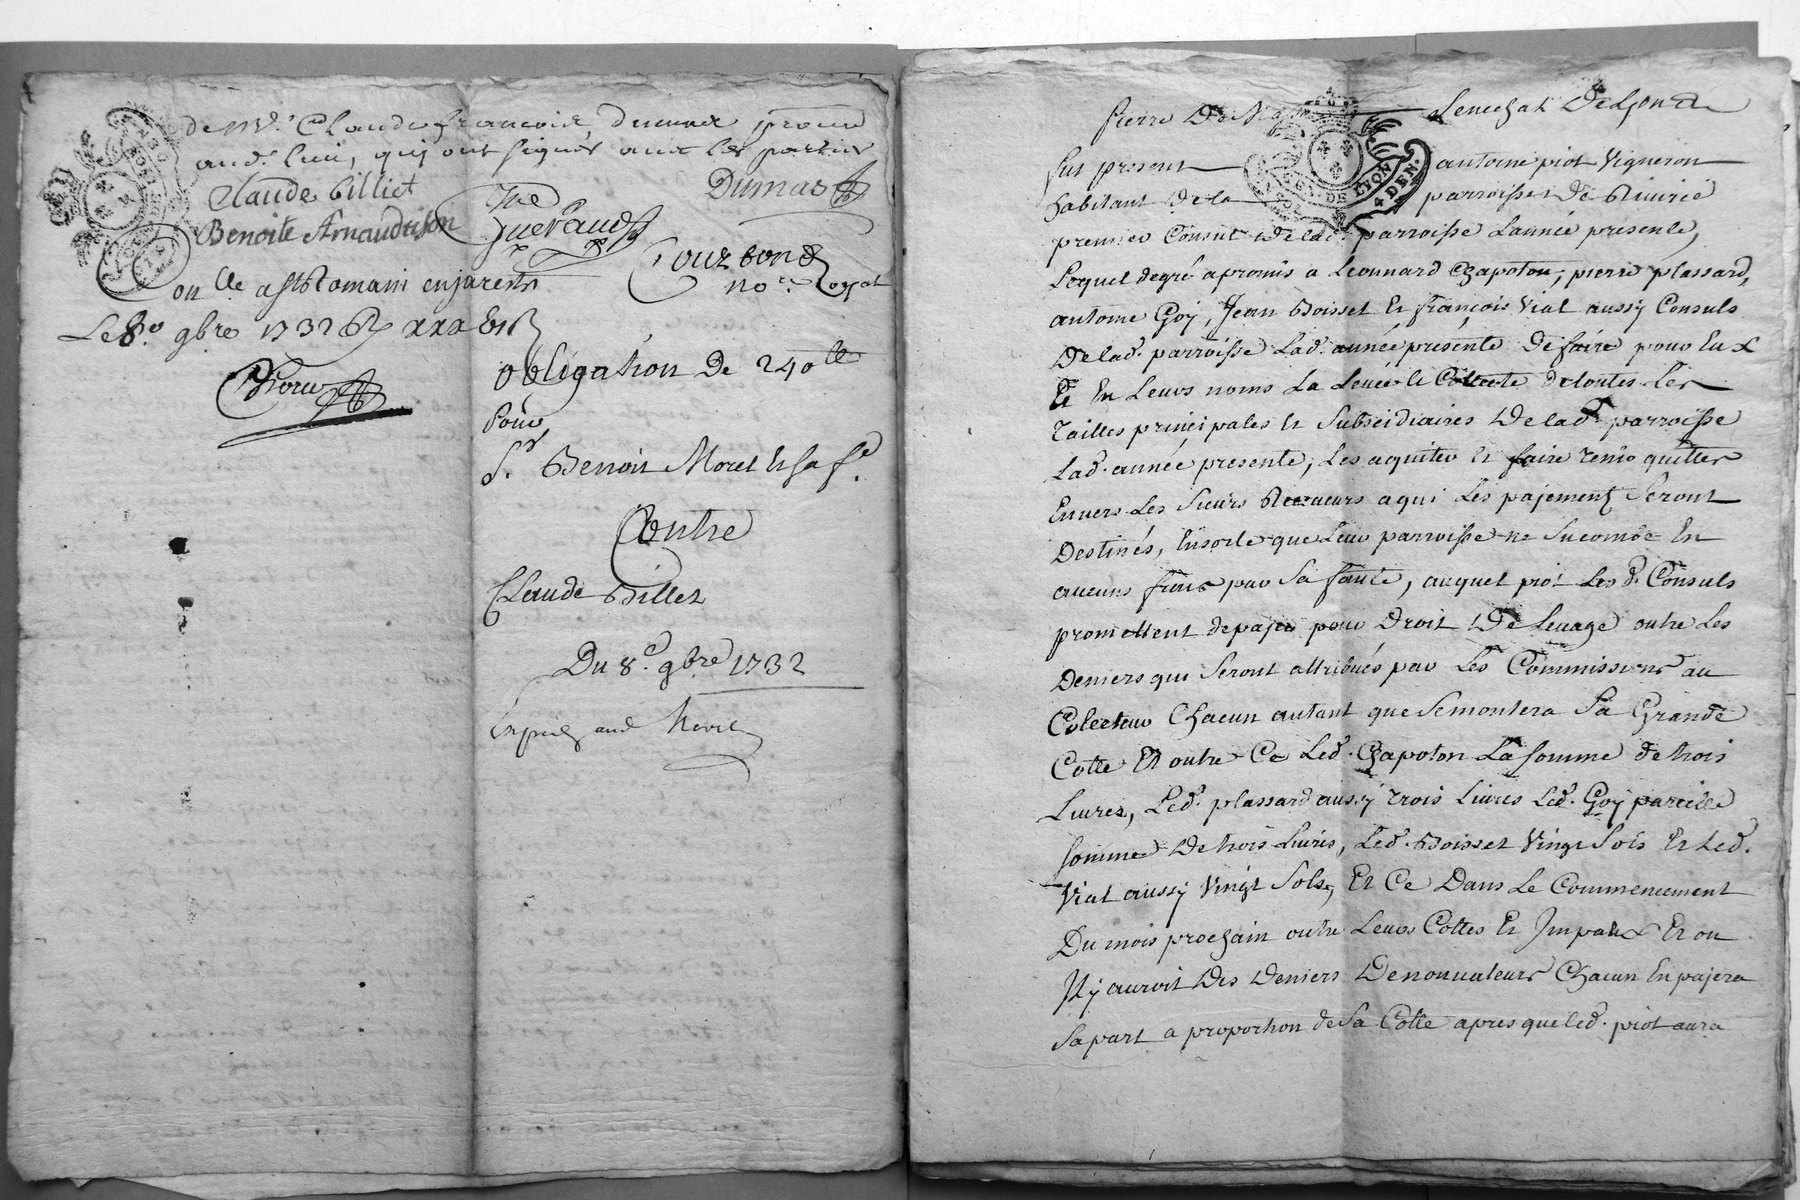 de Mr. Claude françois dumas procu
aud. lieu, quj ont signés avec les parties
Claude billiet
Dumas
Benoite Arnaudtison
Gueraud
Courbon
no.re Royal
on.lle a St Romain en jarest
Le 8.e 9bre 1732
Obligation De 240 lt
Pour
Sr. Benoit Morel et sa fe.
Contre
Claude Billet
Du 8.e 9bre 1732
Pierre De
Senechal De Lyon
fut present
antoine piot Vigneron
habitant de la
parroisse De Rivirie
premier Consul De lad. parroisse Lannée presente,
Lequel degré apromis a Leonnard Chapoton, pierre plassard,
antoine Goÿ, Jean Boisset et françois Vial aussÿ Consuls
De lad. parroisse Lad. année présente De faire pour Eux
Et En Leurs noms La Levée et Collecte de toutes Les
Tailles principales et Subsidiaires De lad. parroisse
Lad. année presente, Les aquiter et faire tenir quittes
Envers Les Sieurs Receveurs a qui Les pajements Seront
Destinés, Ensorte que Leur parroisse ne Sucombe En
aucuns frais par Sa faute, auquel piot Les d. Consuls
promettent de pajer pour Droit De Levage outre Les
Deniers qui Seront attribués par Les Commissions au
Colecteur Chacun autant que Se montera Sa Grande
Cotte Et outre Ce Led. Chapoton La Somme de trois
Livres, Led. plassard aussÿ trois Livres Led. Goÿ pareille
Somme De trois Livres, Led. Boisset Vingt Sols Et Led.
Vial aussÿ Vingt Sols, Et Ce Dans Le Commencement
Du mois prochain outre Leurs Cottes Et Et ou
Ilÿ auroit Des Deniers Chacun En pajera
Sa part a proportion de Sa Cotte apres que led. piot aura
GEN. DE LYON
4 DEN.